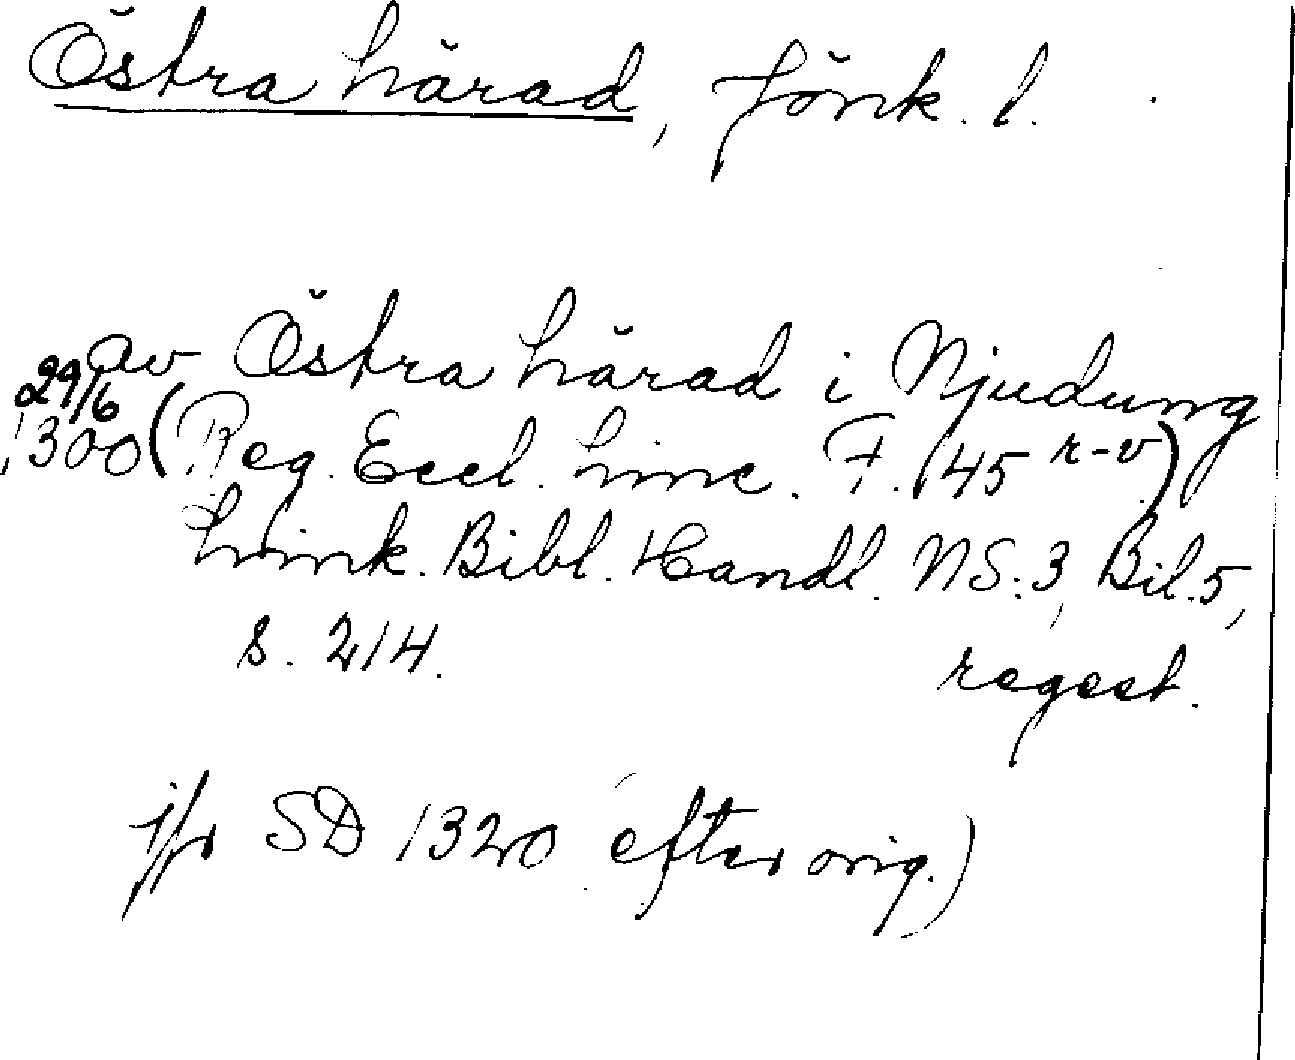 Östra härad, Jönk. l.
av Östra härad i Njudung
29/6
1300 (Reg. Eccl. Linc. F. 145 r-v)
Link. Bibl. Handl. NS: 3, Bil. 5,
s. 214.
regest.
jfr SD 1320 efter orig.)